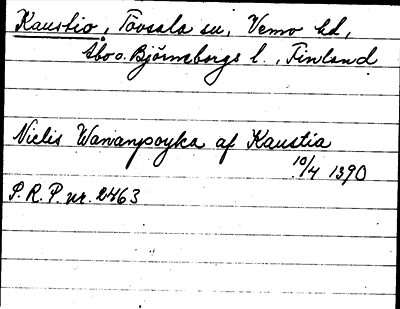 Kaustio, Tövsala sn, Vemo hd,
Åbo o. Björneborgs l., Finland
Niclis Wananpoyka af Kaustia
10/4 1390
P. R. P. nr. 2463